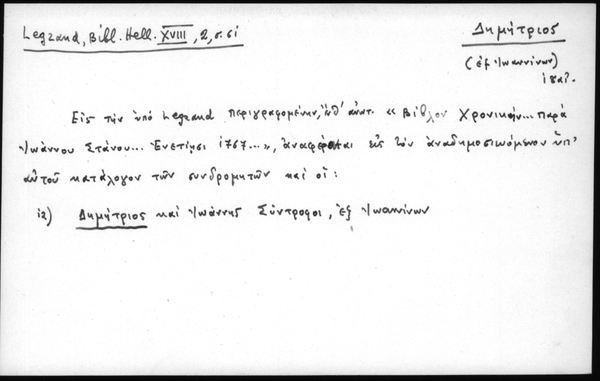 Legrand, Bibl. Hell. XVIII, 2, σ. 61
Δημήτριος
(ἐξ Ἰωαννίνων)
Εἰς τὴν ὑπὸ Legrand περιγραφομένην, ὑπ' « Βίβλον Χρονικὴν... παρὰ
Ἰωάννου Στάνου... Ἐνετίησι 1767...», ἀναφέρεται εἰς τὸν ἀναδημοσιευόμενον ὑπ'
αὐτοῦ κατάλογον τῶν συνδρομητῶν καὶ οἱ:
12) Δημήτριος καὶ Ἰωάννης Σύντροφοι, ἐξ Ἰωαννίνων